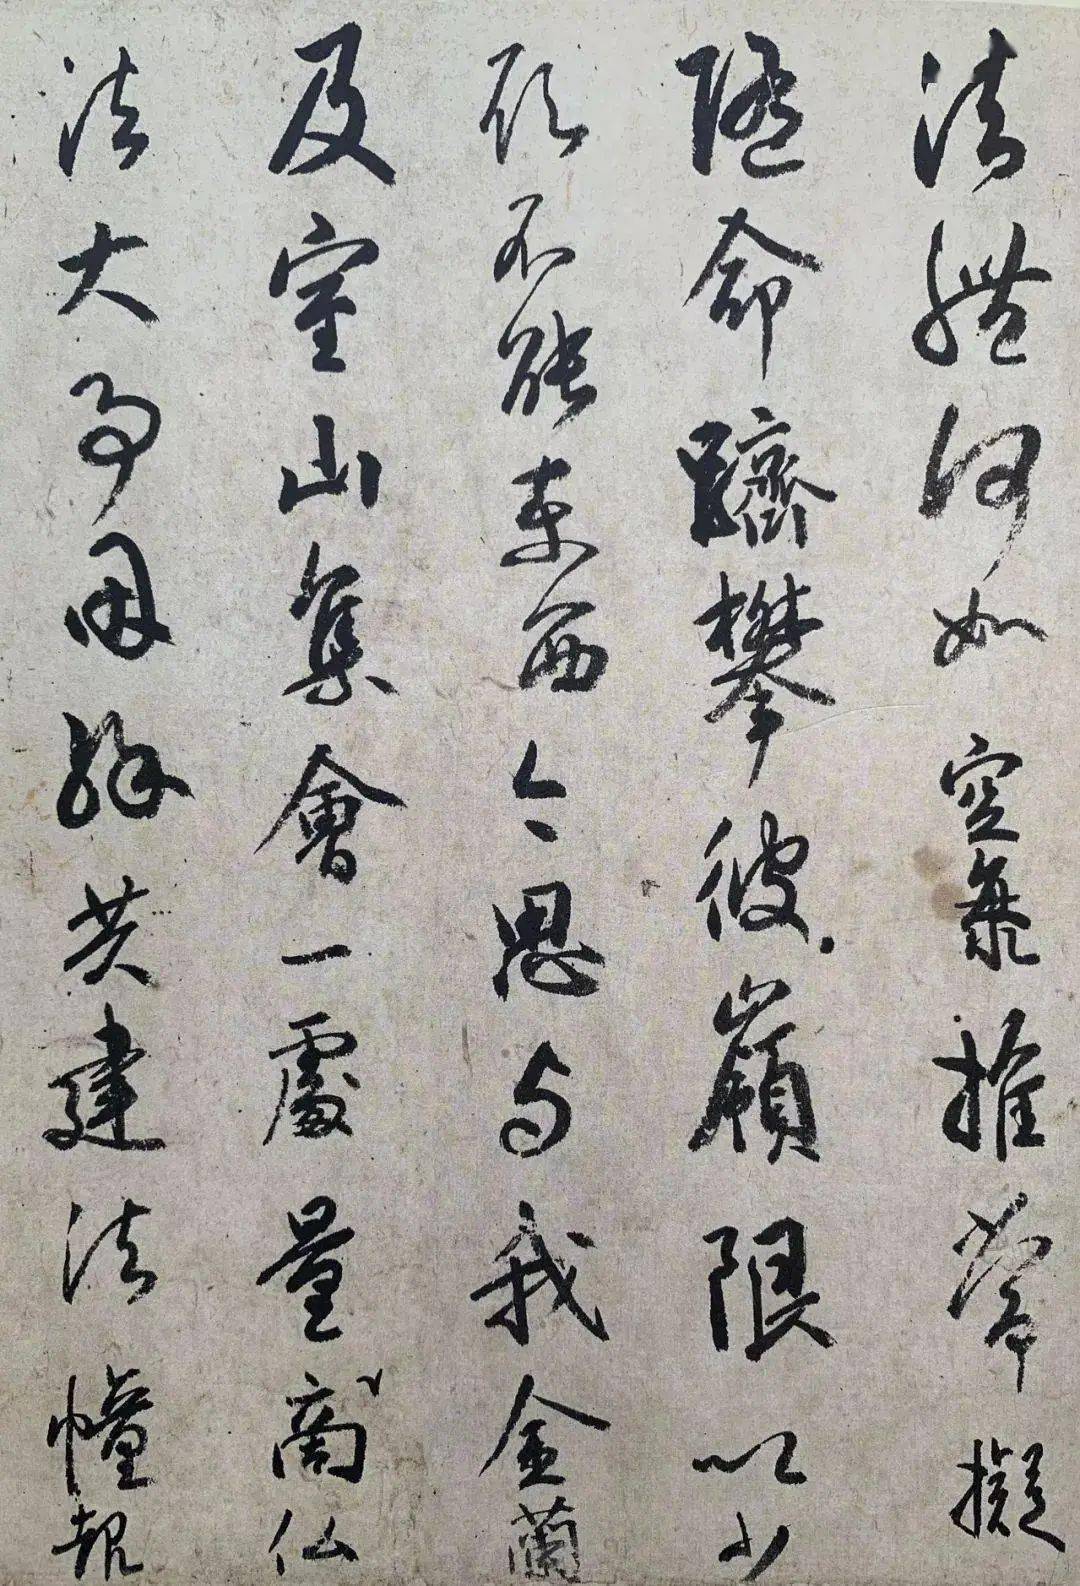 法體何如空海推常擬
隨命躋攀彼嶺限以少
願不能東西今思与我金蘭
及室山集會一處量商仏
法大事因緣共建法幢報